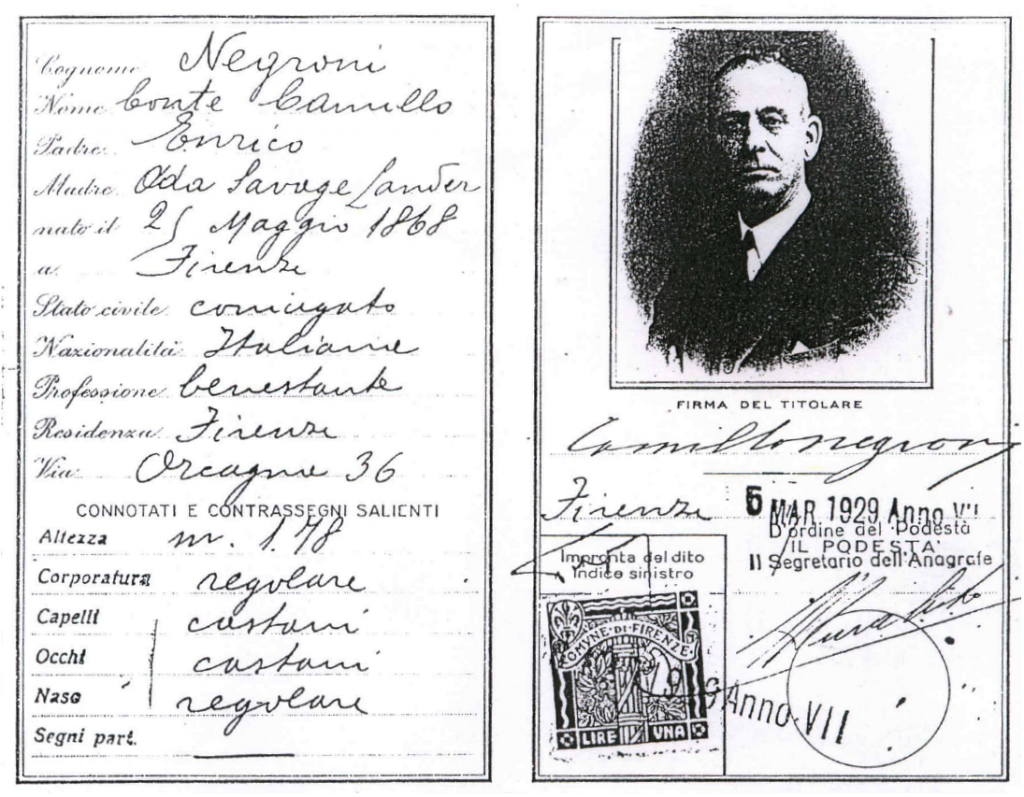 Cognome Negroni
Nome Conte Camillo
Padre Enrico
Madre Ada Savage Landor
nato il 25 Maggio 1868
a Firenze
Stato civile coniugato
Nazionalità Italiana
Professione benestante
Residenza Firenze
Via Orcagna 36
CONNOTATI E CONTRASSEGNI SALIENTI
Altezza m. 1.78
Corporatura regolare
Capelli castani
Occhi castani
Naso regolare
Segni part.
FIRMA DEL TITOLARE
Camillo Negroni
Firenze
6 MAR 1929 Anno VII
D'ordine del Podestà
IL PODESTA'
Il Segretario dell'Anagrafe
Impronta del dito
indice sinistro
COMVNE·DI·FIRENZE·
LIRE VNA
Anno VII